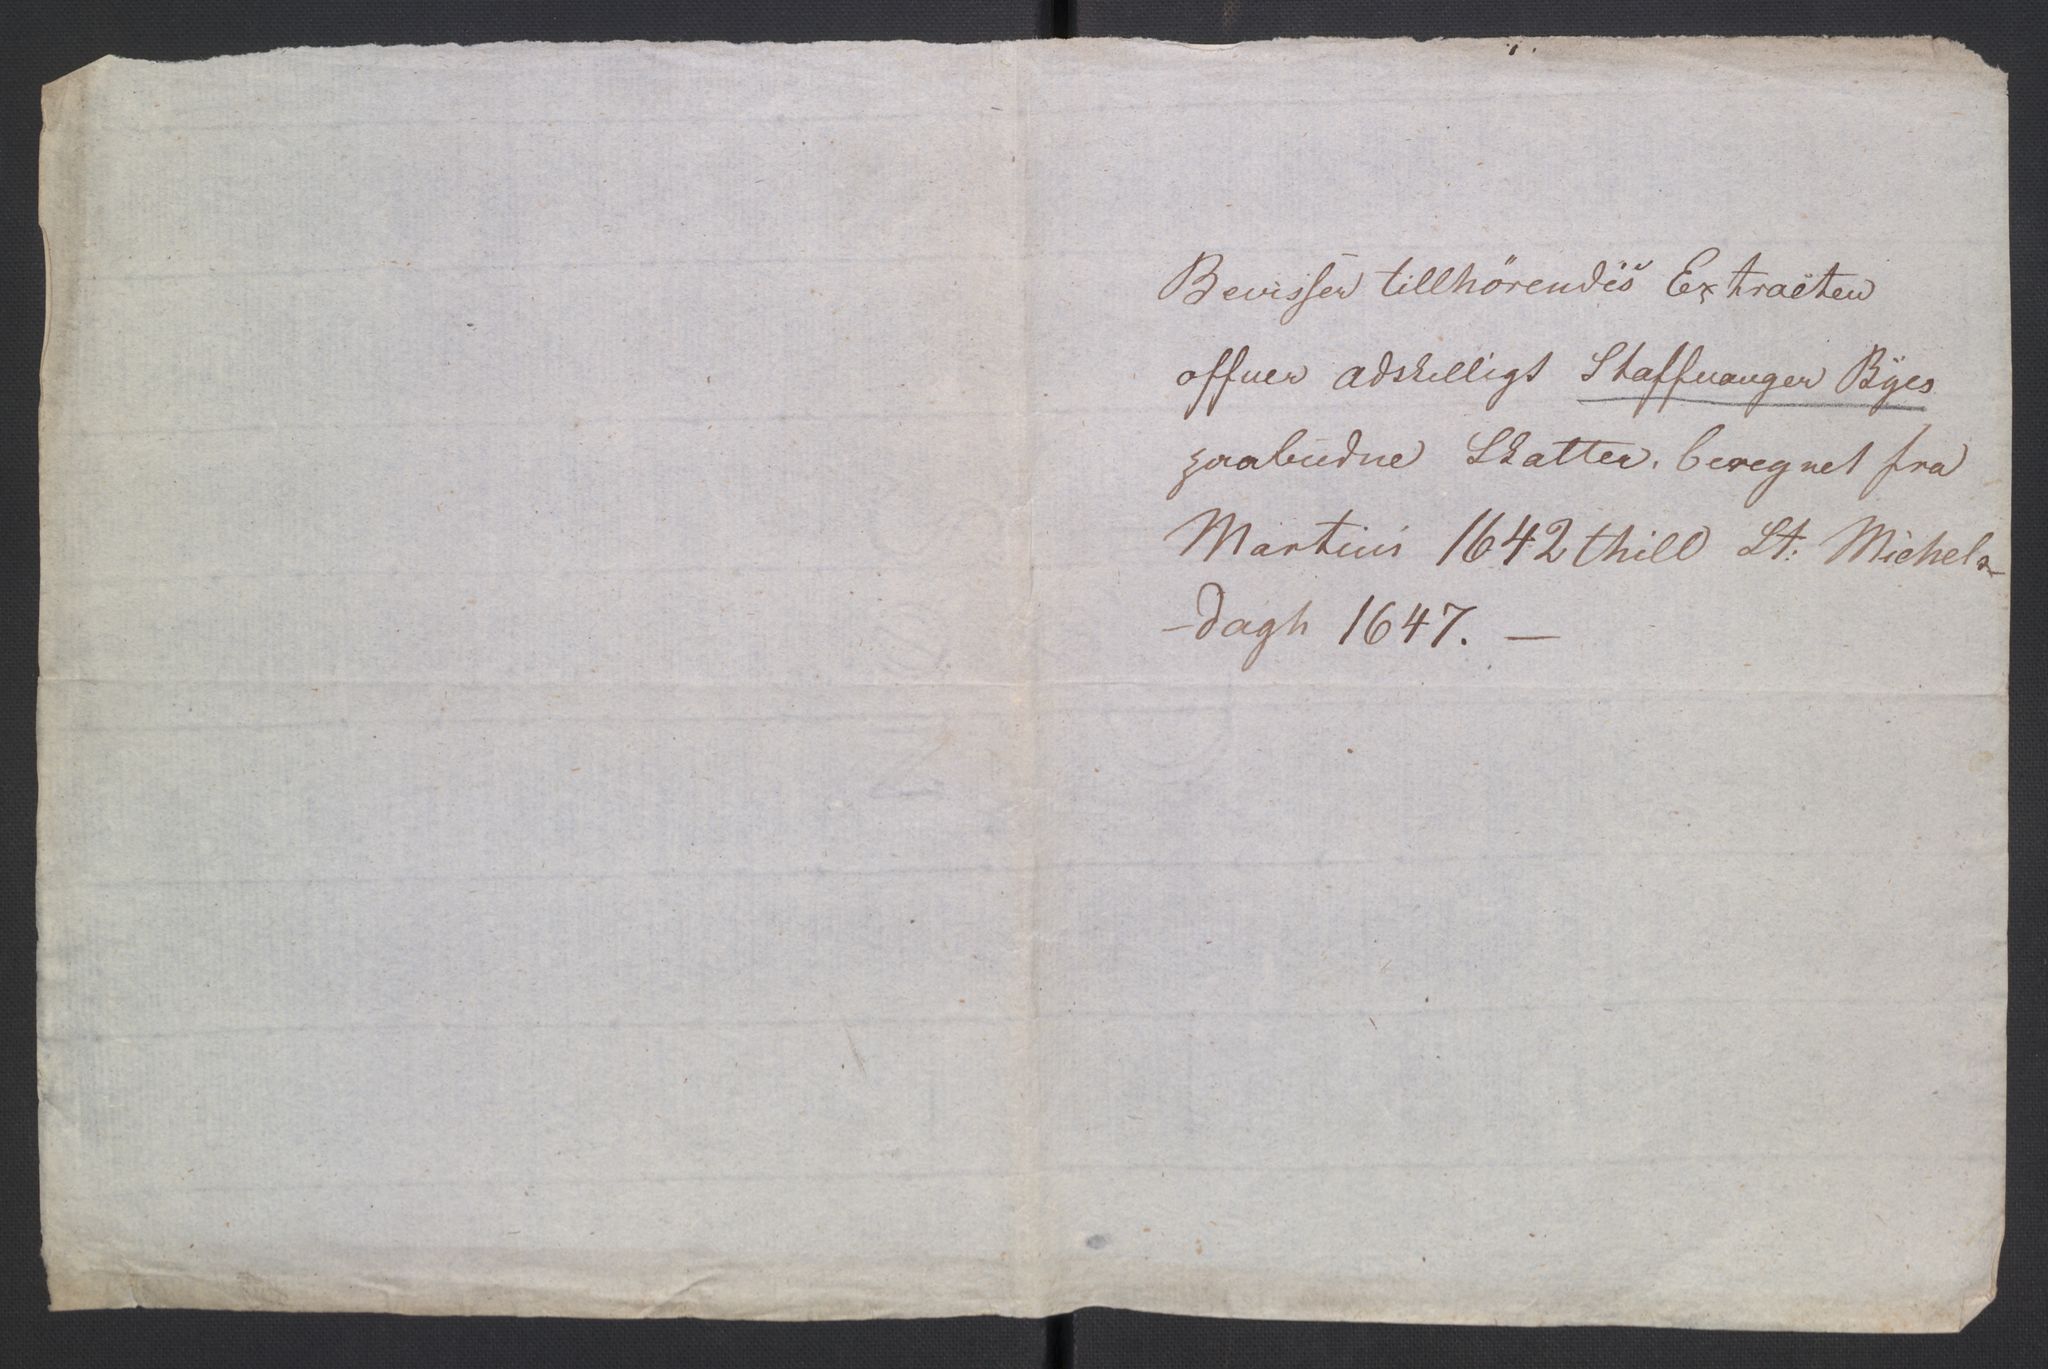 Bevisser tillhörendis Extracten
offuer adskelligt Staffuanger Byes
paabudne Skatter, beregnet fra
Martius 1642 thill St: Michels-
-dagh 1647. —